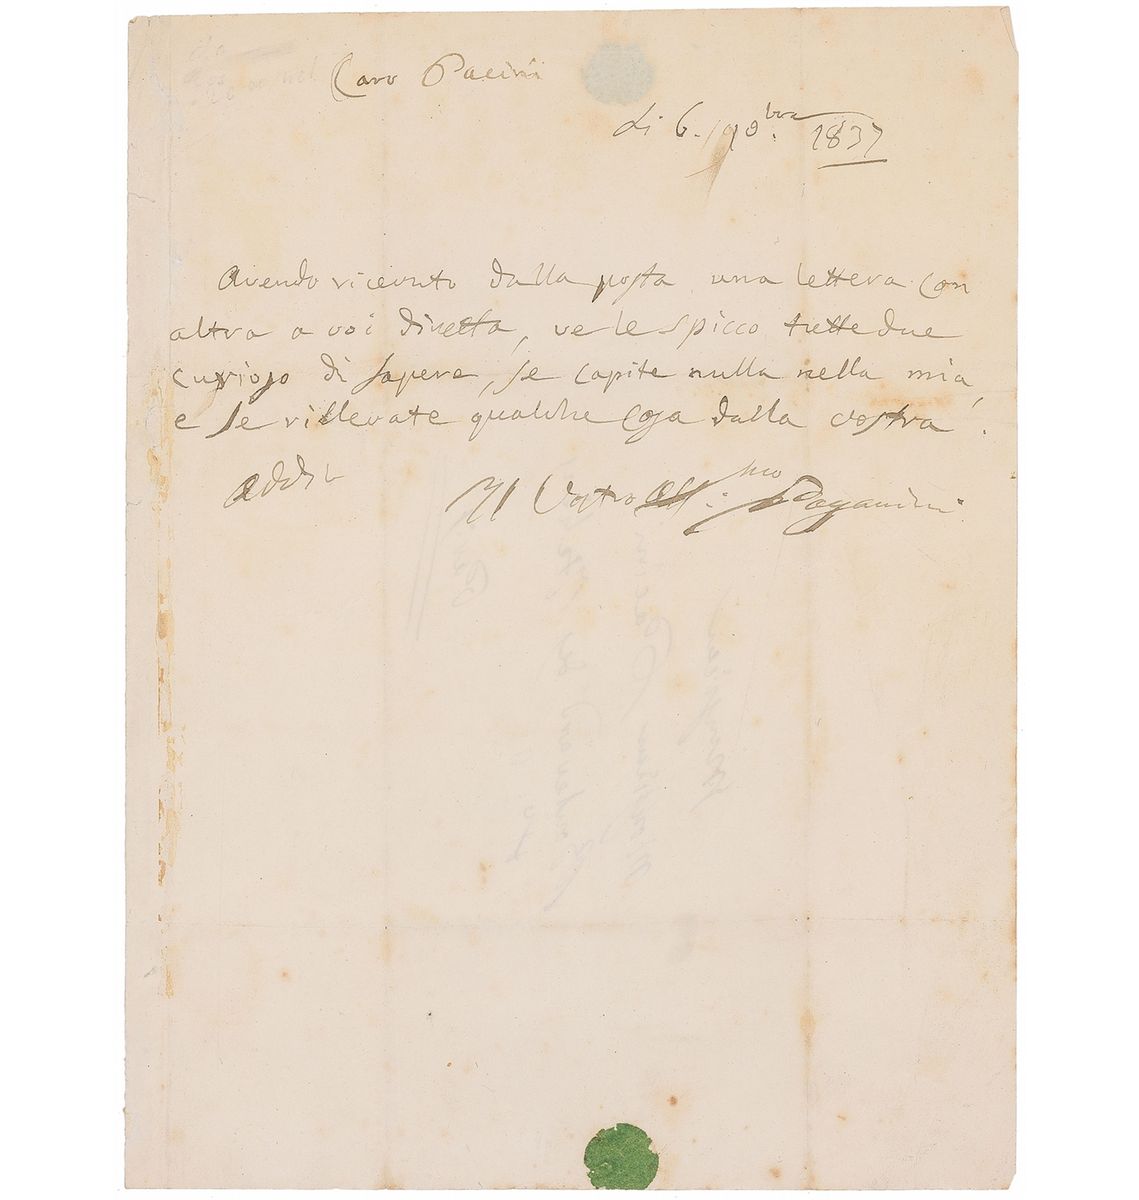 Caro Pacini
li 6. 9bra. 1837
Avendo ricevuto dalla posta una lettera con
altra a voi diretta, ve le spicco tutte due
curioso di sapere, se capite nulla nella mia,
e se rillevate qualche cosa dalla vostra.
Addio
Il Vostro Aff:mo Paganini